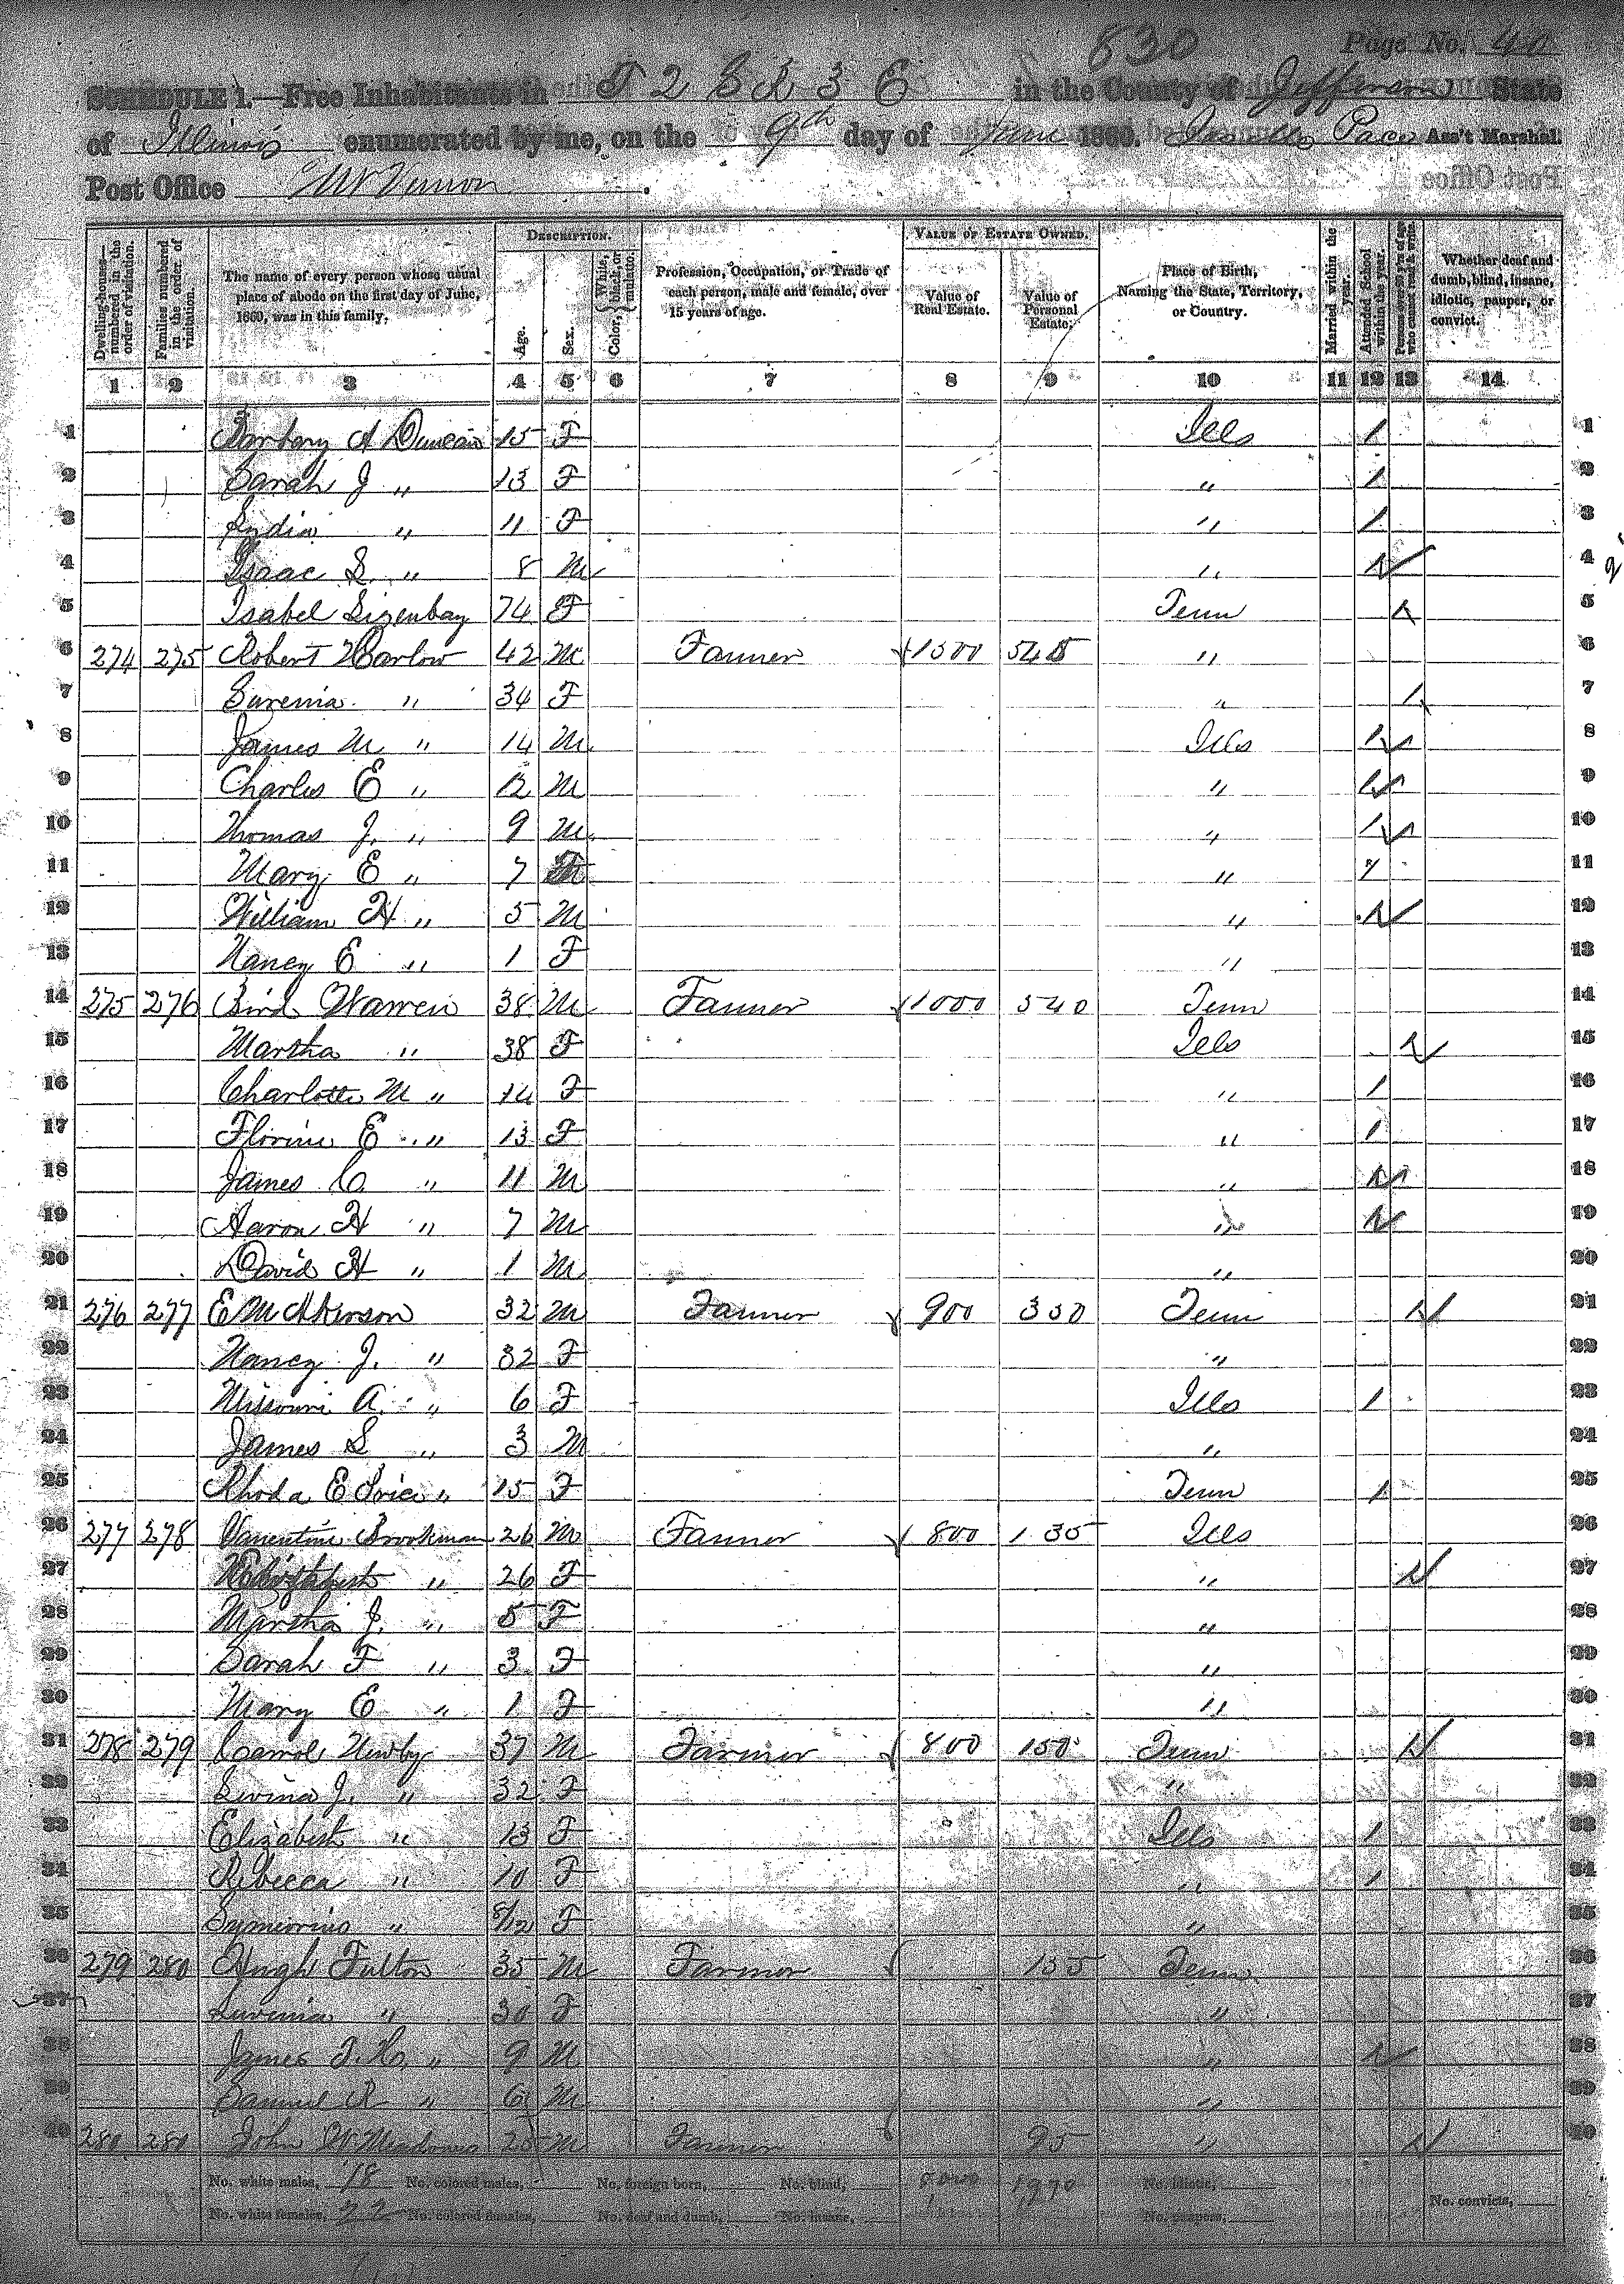 830 Page No. 40
SCHEDULE 1.—Free Inhabitants in T 2 S R 3 E in the County of Jefferson State
of Illinois enumerated by me, on the 9th day of June 1860. Pace Ass't Marshal.
Post Office Mt Vernon
Dwelling-houses—numbered in the order of visitation.
Families numbered in the order of visitation.
The name of every person whose usual place of abode on the first day of June, 1860, was in this family.
DESCRIPTION.
Age.
Sex.
Color, White, black, or mulatto.
Profession, Occupation, or Trade of each person, male and female, over 15 years of age.
VALUE OF ESTATE OWNED.
Value of Real Estate.
Value of Personal Estate.
Place of Birth, Naming the State, Territory, or Country.
Married within the year.
Attended School within the year.
Persons over 20 y'rs of age who cannot read & write.
Whether deaf and dumb, blind, insane, idiotic, pauper, or convict.
1 2 3 4 5 6 7 8 9 10 11 12 13 14
1 A Duncan 15 F Ills / 1
2 Sarah J " 13 F " / 2
3 Lydia " 11 F " / 3
4 Isaac S. " 8 M " / 4
5 Isabel 74 F Tenn / 5
6 274 275 Robert Harlow 42 M Farmer 1500 545 " 6
7 Surenia " 34 F " / 7
8 James M " 14 M Ills / 8
9 Charles E " 12 M " / 9
10 Thomas J. " 9 M " / 10
11 Mary E " 7 F " / 11
12 William H " 5 M " / 12
13 Nancy E " 1 F " 13
14 275 276 Bird Warren 38 M Farmer 1000 540 Tenn 14
15 Martha " 38 F Ills / 15
16 Charlotte M " 14 F " / 16
17 Florine E " 13 F " / 17
18 James C. " 11 M " / 18
19 Aaron H " 7 M " / 19
20 David H " 1 M " 20
21 276 277 E M Akerson 32 M Farmer 900 350 Tenn / 21
22 Nancy J. " 32 F " 22
23 Missouri A. " 6 F Ills / 23
24 James S " 3 M " 24
25 Rhoda E Price " 15 F Tenn / 25
26 277 278 Brookman 26 M Farmer 800 135 Ills 26
27 " 26 F " / 27
28 Martha J. " 5 F " 28
29 Sarah F " 3 F " 29
30 Mary E " 1 F " 30
31 278 279 Carrol Newby 37 M Farmer 800 150 Tenn / 31
32 Levina J. " 32 F " 32
33 Elizabeth " 13 F Ills / 33
34 Rebecca " 10 F " / 34
35 " 8/12 F " 35
36 279 280 Hugh Fulton 35 M Farmer 155 Tenn 36
37 Luvinia " 30 F " 37
38 James " 9 M " / 38
39 Samuel R " 6 M " 39
40 280 280 John W 25 M Farmer 95 " / 40
No. white males, 18 No. colored males, No. foreign born, No. blind, 1970 No. idiotic,
No. white females, 22 No. colored females, No. deaf and dumb, No. insane, No. paupers, No. convicts,